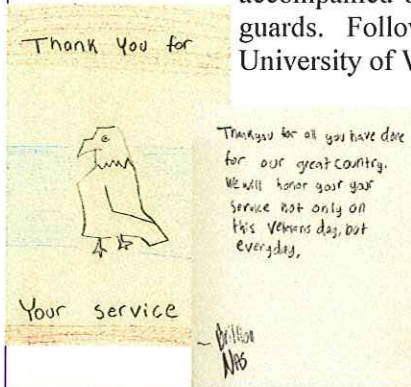 guards. Follow
University of W
Thank You for
Your service
Thankyou for all you have done
for our great country.
We will honor your your
Service not only on
this Veterans day, but
everyday,
~ Brillion